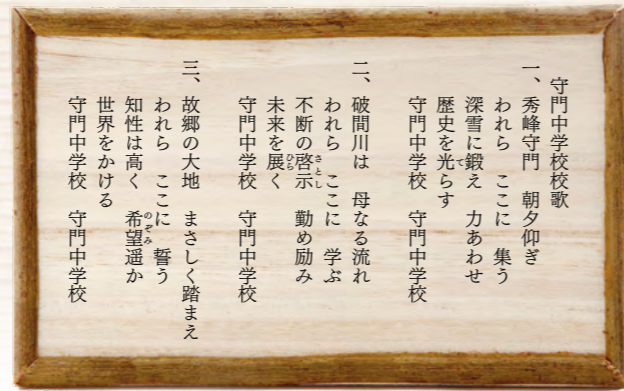 守門中学校校歌
一、秀峰守門　朝夕仰ぎ
われら　ここに　集う
深雪に鍛え　力あわせ
歴史を光らす
守門中学校　守門中学校
二、破間川は　母なる流れ
われら　ここに　学ぶ
不断の啓示　勤め励み
未来を展く
守門中学校　守門中学校
三、故郷の大地　まさしく踏まえ
われら　ここに　誓う
知性は高く　希望遥か
世界をかける
守門中学校　守門中学校
て
さとし
ひら
のぞみ